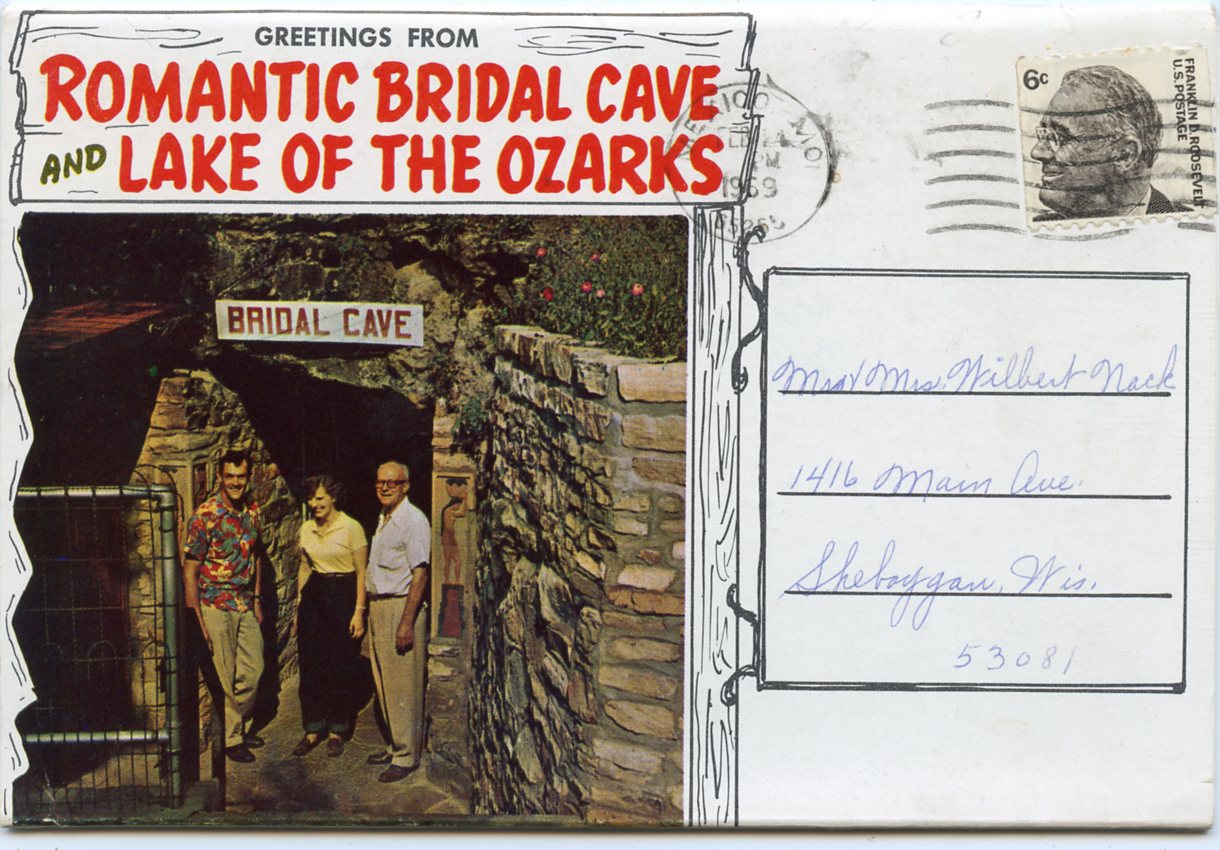 GREETINGS FROM
ROMANTIC BRIDAL CAVE
AND LAKE OF THE OZARKS
MEXICO MO
FEB
PM
1969
65265
6c
FRANKLIN D. ROOSEVELT
U.S. POSTAGE
BRIDAL CAVE
Mr & Mrs. Wilbert Nack
1416 Main Ave.
Sheboygan, Wis.
53081